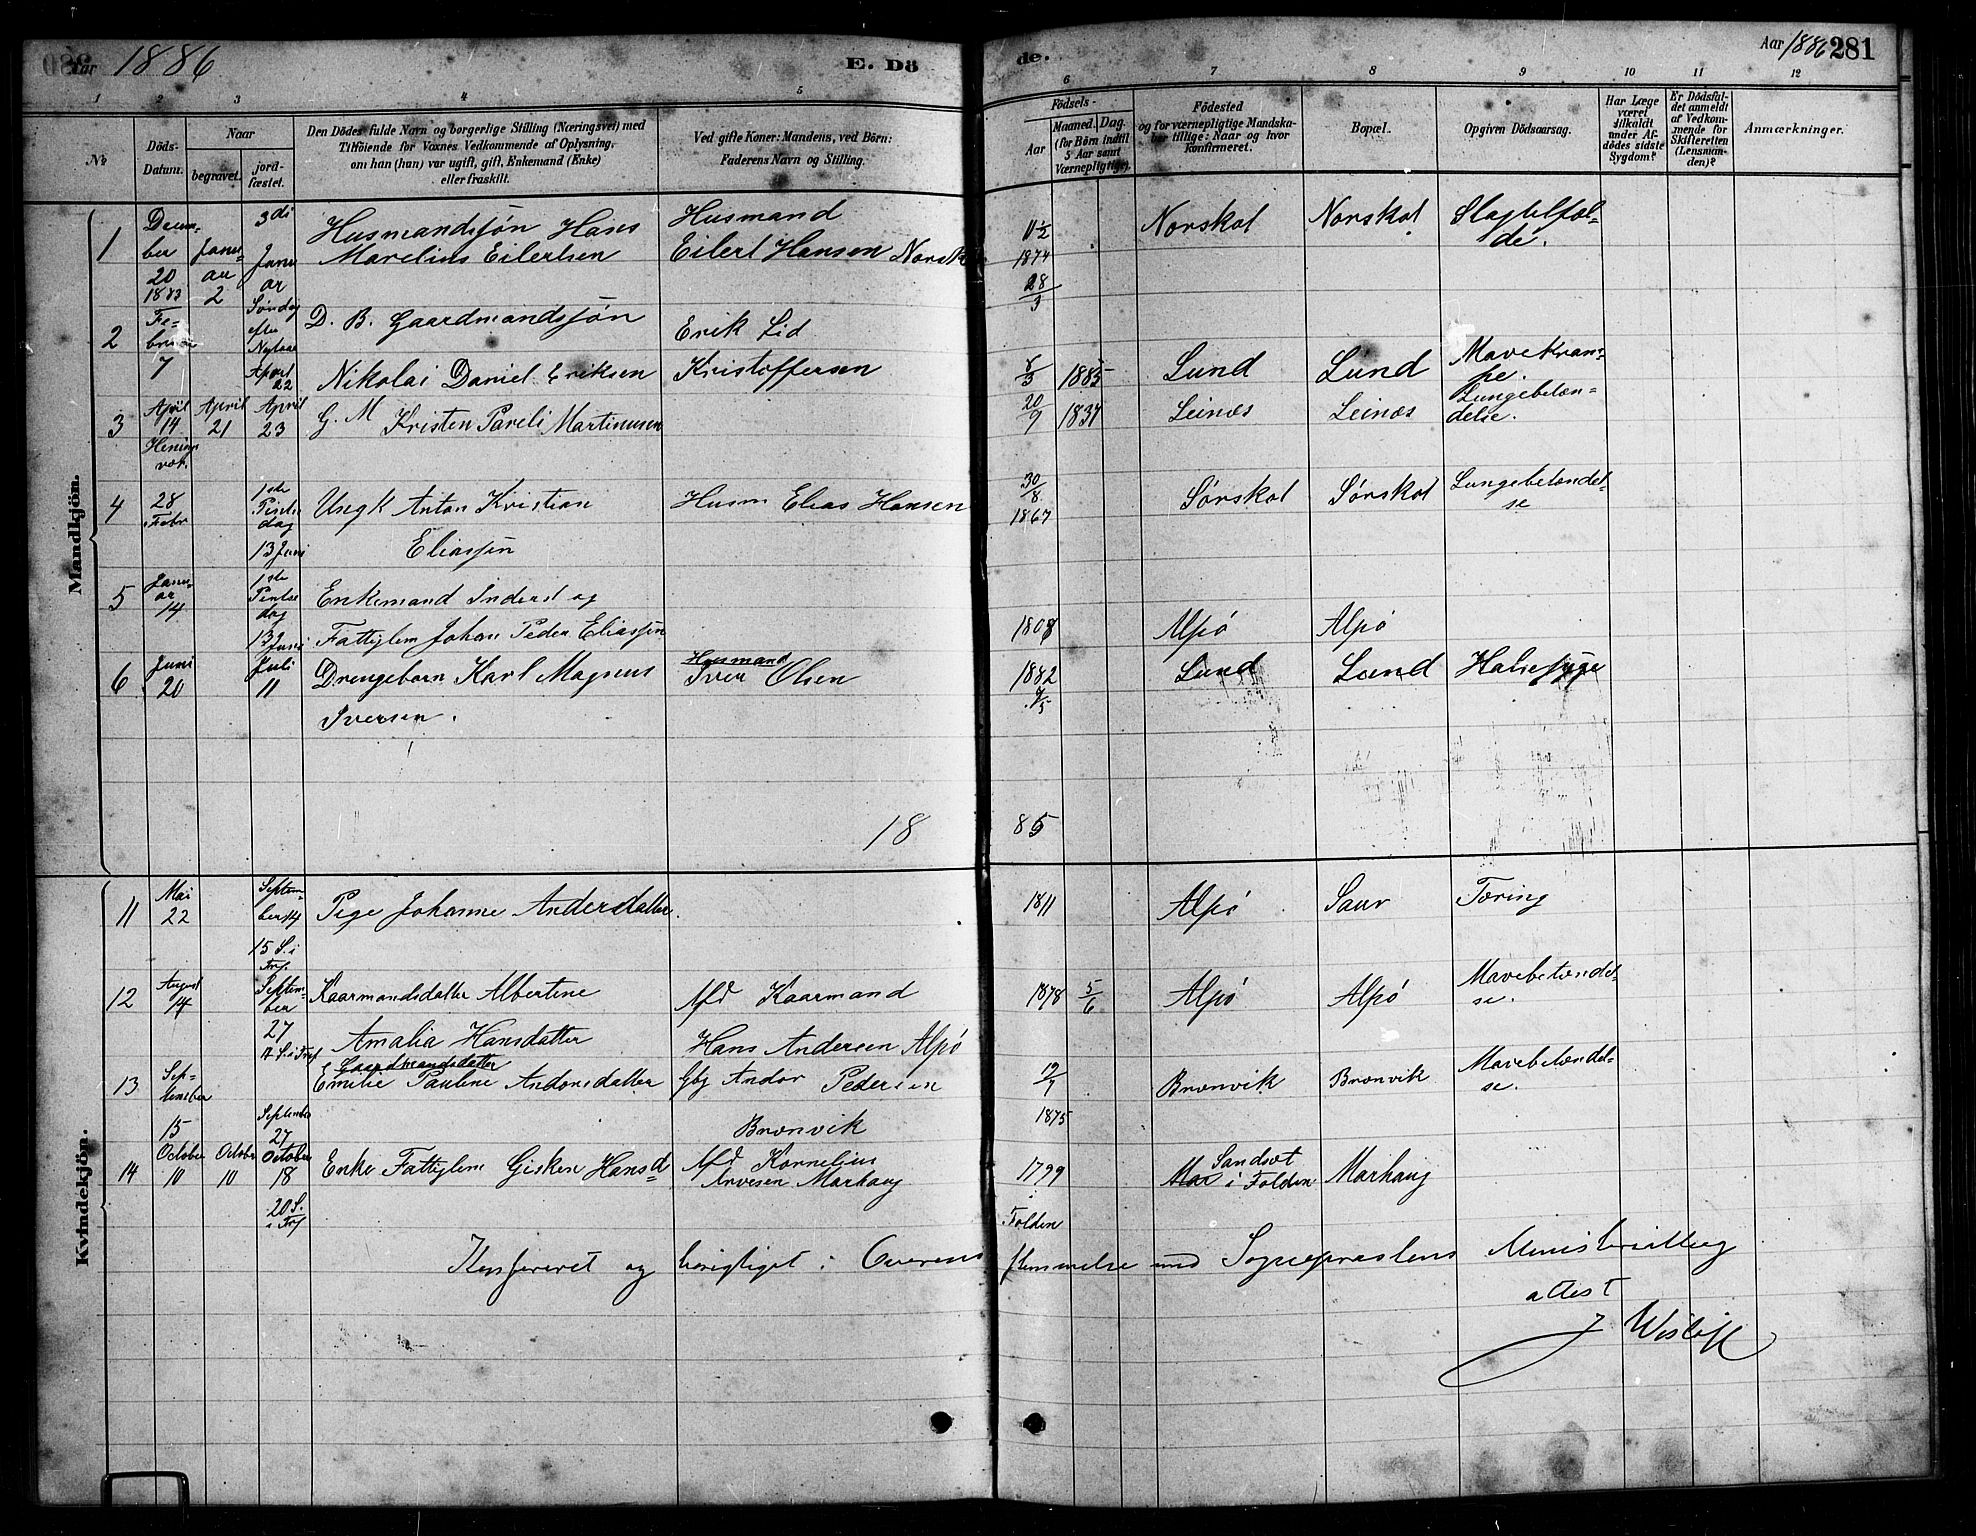 Aar 1886
E. Dö
de.
Aar 1886 281
1 2 3 4 5 6 7 8 9 10 11 12
No
Döds-
Datum.
Naar
begravet.
jord-
fæstet.
Den Dödes fulde Navn og borgerlige Stilling (Næringsvei) med
Tilföiende for Voxnes Vedkommende af Oplysning,
om han (hun) var ugift, gift, Enkemand (Enke)
eller fraskilt.
Ved gifte Koner: Mandens, ved Börn:
Faderens Navn og Stilling.
Födsels-
Aar
Maaned.
Dag.
(for Börn indtil
5 Aar samt
Værnepligtige).
Födested
og for værnepligtige Mandska-
ber tillige: Naar og hvor
Konfirmeret.
Bopæl.
Opgiven Dödsaarsag.
Har Læge
været
tilkaldt
under Af-
dödes sidste
Sygdom?
Er Dödsfal-
det anmeldt
af Vedkom-
mende for
Skifteretten
(Lensman-
den)?
Anmærkninger.
Mandkjön.
1
ber
20
Janu-
ar
2
3di
Janu
ar
Søndag
efter
Nytaar
Husmandssøn Hans
Marelius Eilertsen
Husmand
Eilert Hansen
11½
1874
28/3
Norskot
Norskot
2
Fe-
7
April
22
D. B. Gaardmandssøn
Nikolai Daniel Eriksen
Erik Lid
Kristoffersen
8/3 1885
Lund
Lund
Mavekram-
pe.
3
April
14
April
21
April
23
G. M Kristen Pareli Martinusen
20/9 1837
Leinæs
Leinæs
Lungebetæn-
delse.
4
28
Febr
1ste
Pintse
dag
13 Juni
Ungk Anton Kristian
Eliassøn
Husm Elias Hansen
30/8
1867
Sørskot
Sørskot
Lungebetændel-
se
5
Janu-
ar
14
1ste
Pintse
dag
13 Juni
Enkemand Inderst og
Fattiglem Johan Peder Eliassøn
1808
Alpø
Alpø
6
Juni
20
Juli
11
Drengebarn Karl Magnus
Iversen.
Husmand
Iver Olsen
1882
Lund
Lund
Halssyge
18
85
Kvindekjön.
11
Mai
22
Septem-
ber 14
15 S. i
Tref.
Pige Johanne Andersdatter.
1811
Alpø
Saur
Tæring
12
August
14
Septem-
ber
27
Kaarmandsdatter Albertine
Amalia Hansdatter
Afd Kaarmand
Hans Andersen Alpø
1878 5/6
Alpø
Alpø
Mavebetændel-
se.
13
Sep-
tember
15
September
27
Gaardmandsdatter
Emilie Pauline Andorsdatter
Gbj Andor Pedersen
Brænvik
19/7
1875
Brænvik
Brænvik
Mavebetændel-
se.
14
October
10
October
10
October
18
20 S.
i Tref
Enke Fattiglem Gisken Hansd=
Afd Kornelius
Arvesen Marhaug
1799
i
Folden
Sandset
i Folden
Marhaug
Konfereret og berigtiget i Overens
stemmelse med Sognepræstens Ministerialbog
attest
J Wisløff